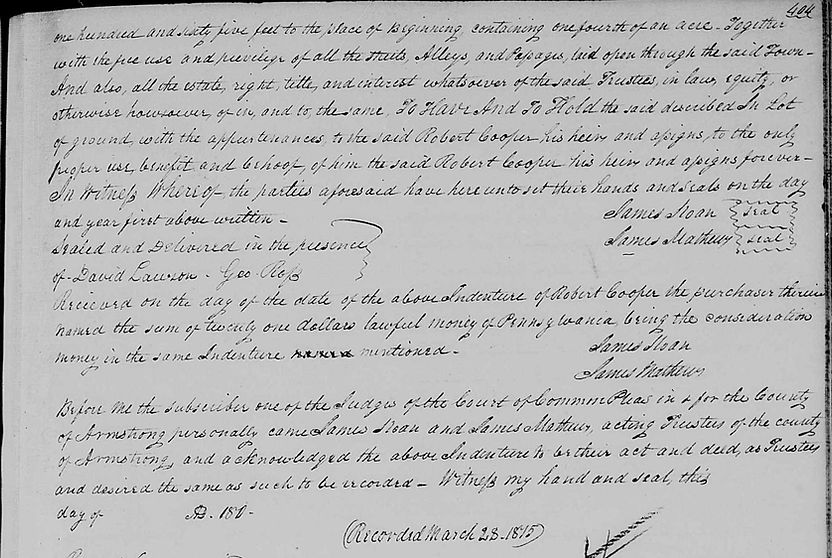 404
one hundred and sixty five feet to the place of Beginning, containing one fourth of an acre - Together
with the free use and privilege of all the streets, Alleys, and Passages, laid open through the said Town -
And also, all the estate, right, title, and interest whatsoever of the said Trustees, in law, equity, or
otherwise howsoever, of, in, and to, the same, To Have And To Hold the said described In Lot
of ground, with the appurtenances, to the said Robert Cooper his heirs and assigns, to the only
proper use, benefit, and behoof, of him the said Robert Cooper his heirs and assigns forever -
In Witness Whereof, the parties aforesaid have hereunto set their hands and seals on the day
and year first above written -
James Sloan seal
Sealed and Delivered in the presence
James Mathews seal
of - David Lawson - Geo. Ross
Recieved on the day of the date of the above Indenture of Robert Cooper the purchaser therein
named the sum of twenty one dollars lawful money of Pennsylvania, being the consideration
money in the same Indenture mentioned -
James Sloan
James Mathews
Before me the subscriber one of the Judges of the Court of Common Pleas in & for the County
of Armstrong personally came James Sloan and James Mathews, acting Trustees of the county
of Armstrong, and acknowledged the above Indenture to be their act and deed, as Trustees
and desired the same as such to be recorded - Witness my hand and seal, this
day of AD. 180-
(Recorded March 28 - 1815)